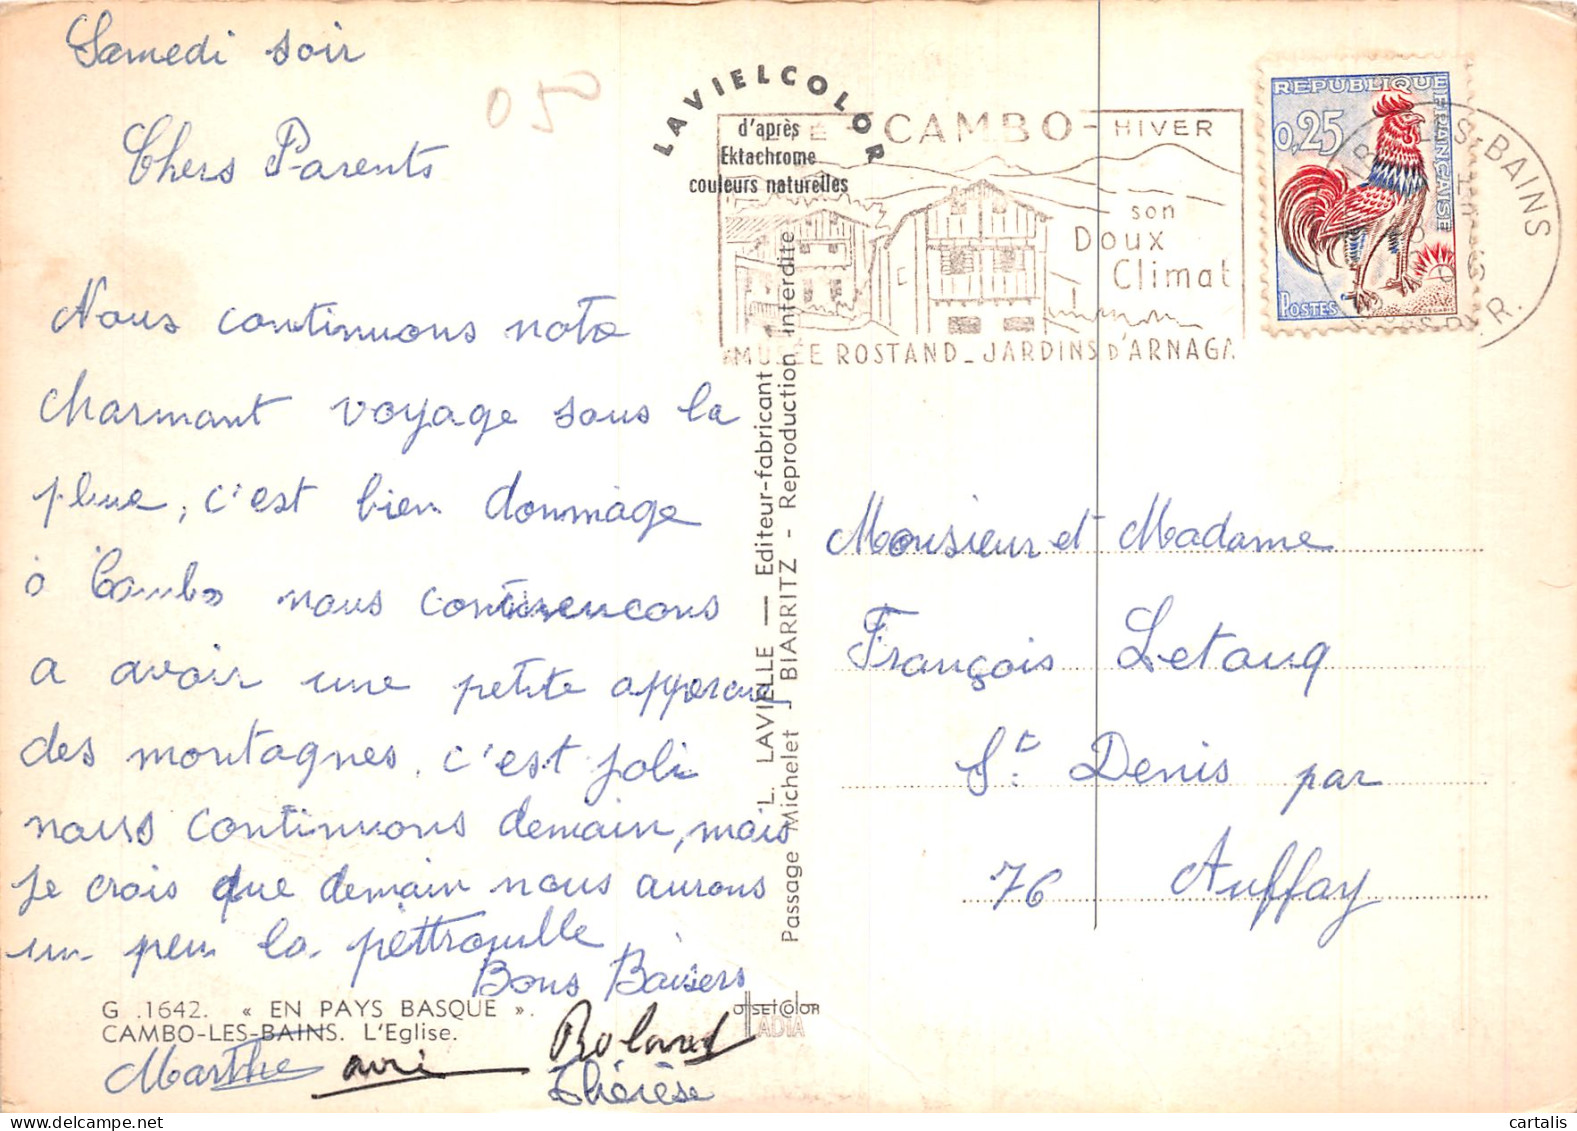 Samedi soir
Chers Parents
Nous continuons notre
charmant voyage sous la
pluie, c'est bien dommage
à Cambo nous commencons
a avoir une petite appercue
des montagnes. c'est joli
nous continuons demain, mais
je crois que demain nous aurons
un peu la pettrouille
Bons Baisers
Marthe
Roland
Thérèse
G .1642. « EN PAYS BASQUE ».
CAMBO-LES-BAINS. L'Eglise.
050
LAVIELCOLOR
d'après
Ektachrome
couleurs naturelles
L. LAVIELLE — Editeur-fabricant
Passage Michelet - BIARRITZ - Reproduction interdite
OFFSETCOLOR
IADIA
ÉTÉ - CAMBO - HIVER
son
Doux
Climat
MUSÉE ROSTAND _ JARDINS D'ARNAGA
REPUBLIQUE
FRANÇAISE
0,25
POSTES
LES-BAINS
Monsieur et Madame
François Letouq
St. Denis par
76 Auffay
cartalis